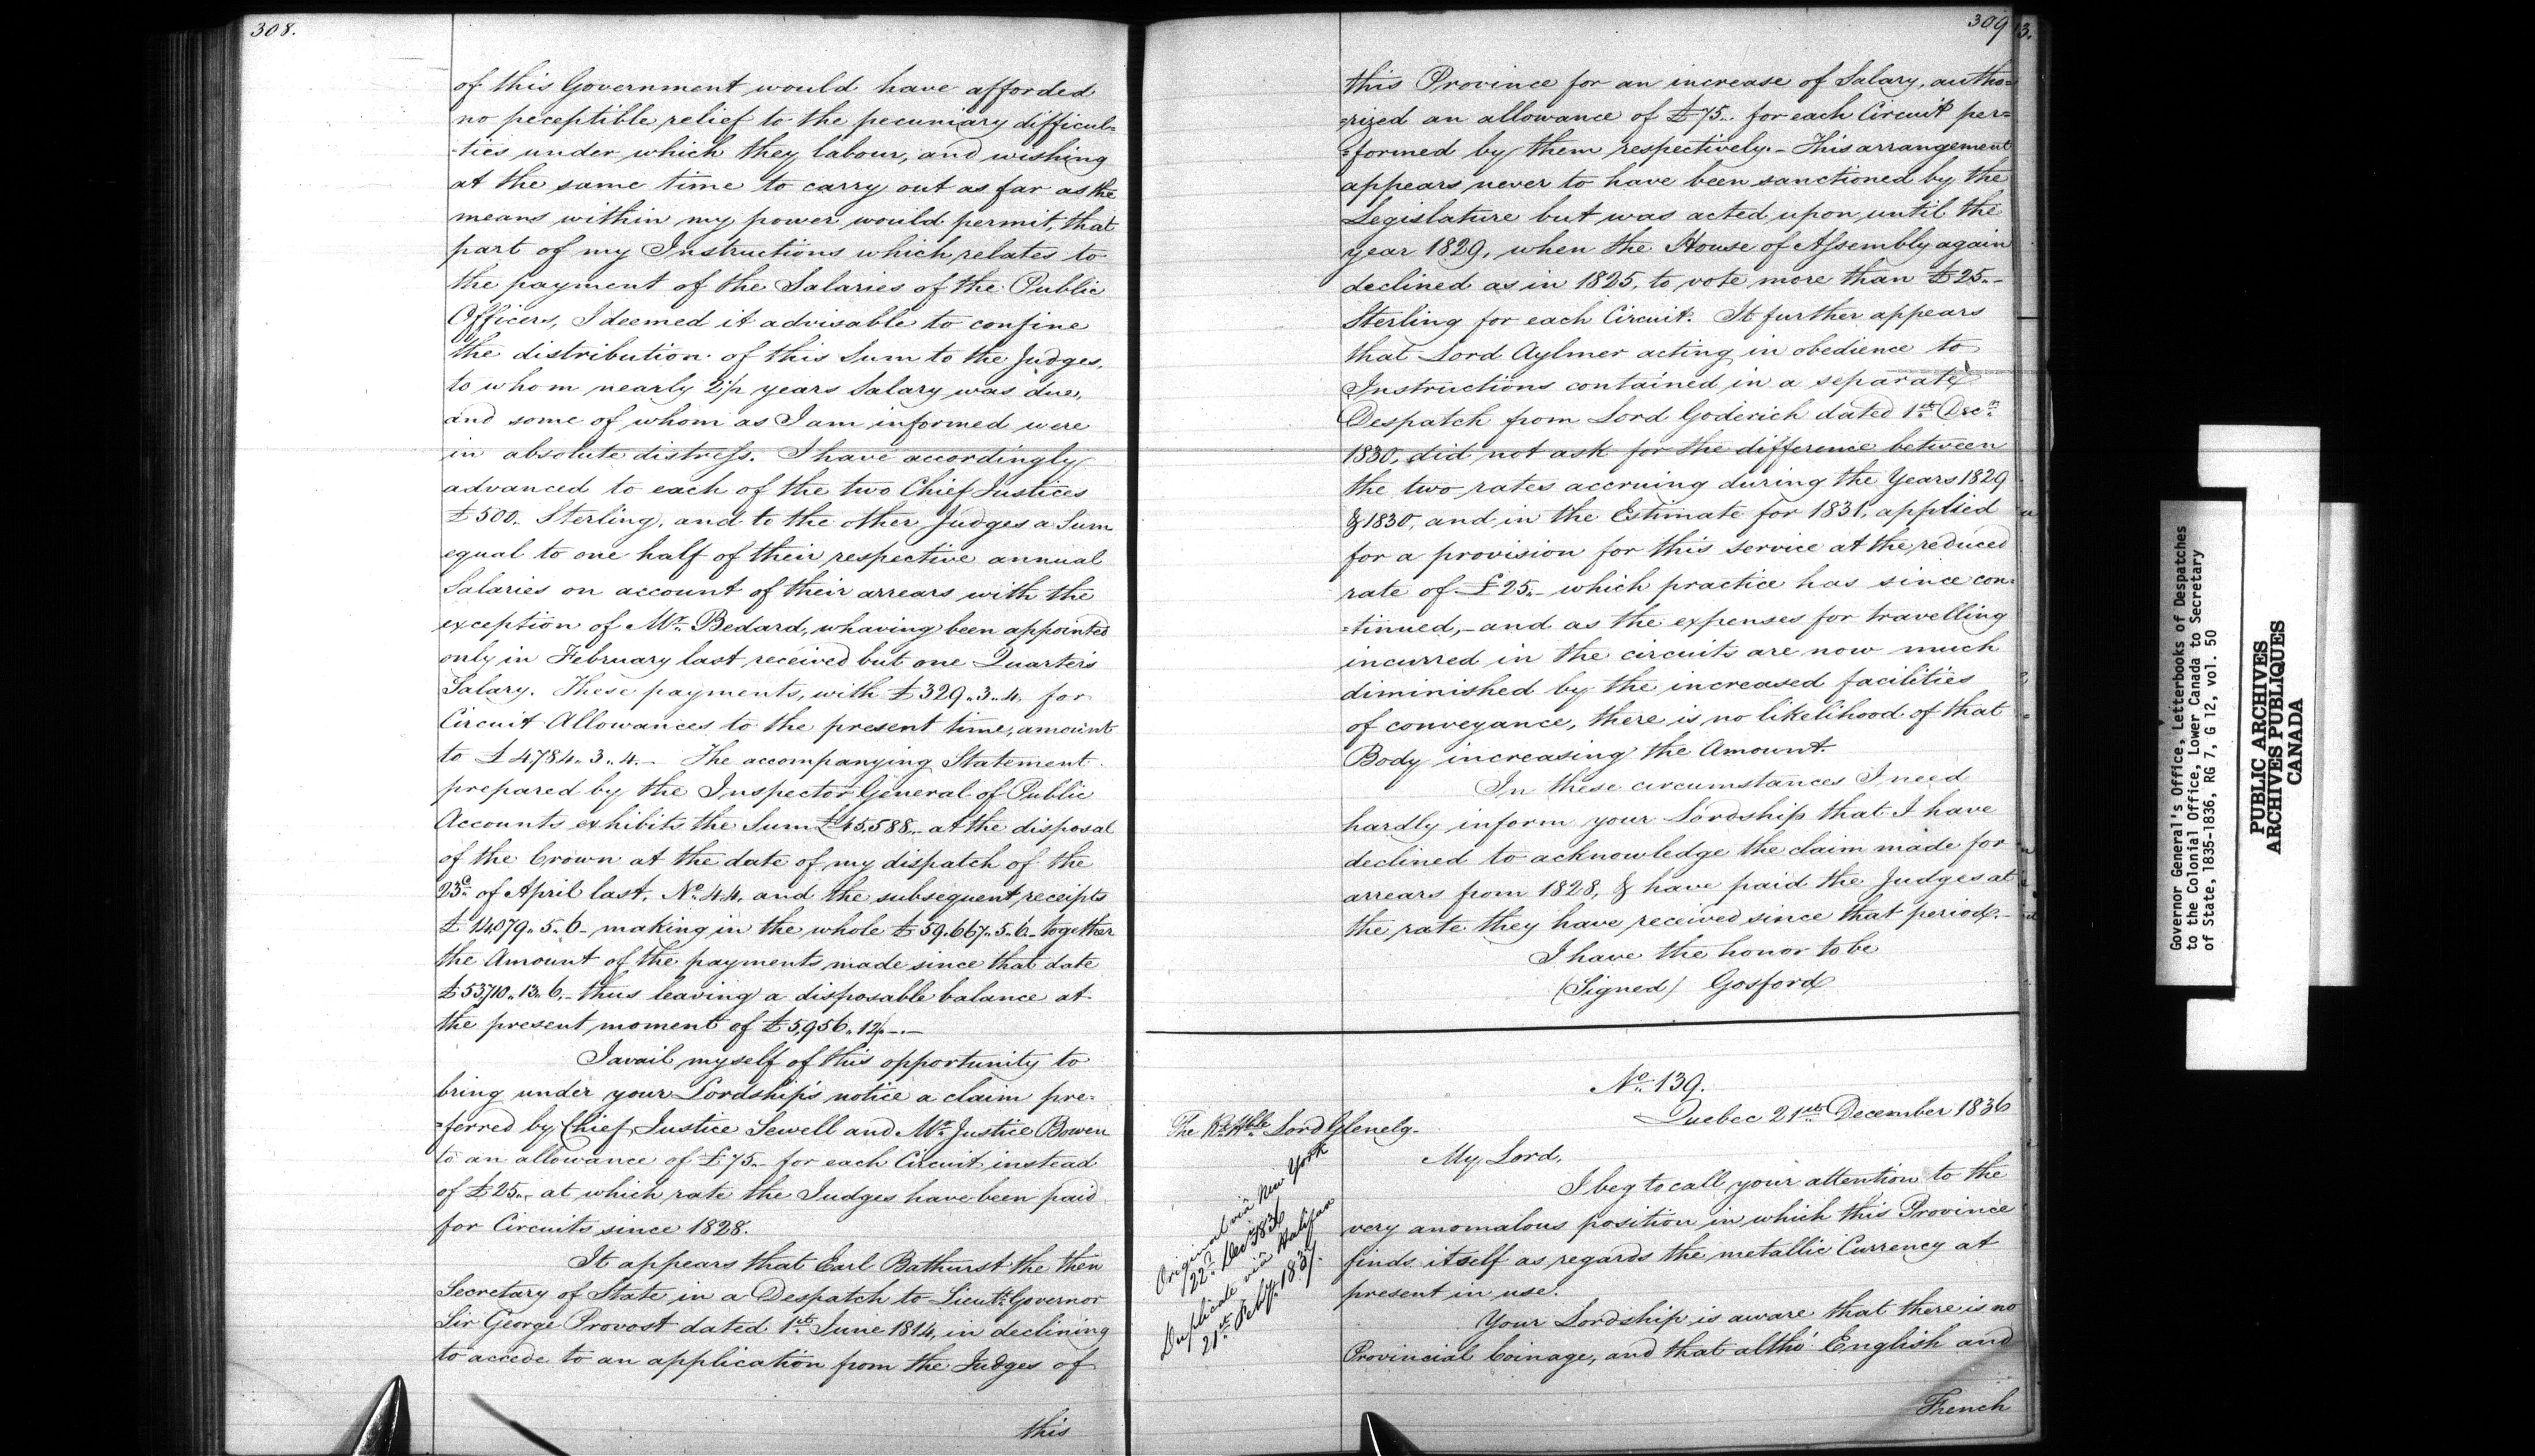 308.
of this Government would have afforded
no peceptible relief to the pecuniary difficul=
=ties under which they labour, and wishing
at the same time to carry out as far as the
means within my power would permit, that
part of my Instructions which relates to
the payment of the Salaries of the Public
Officers, I deemed it advisable to confine
the distribution of this Sum to the Judges,
to whom nearly 2½ years Salary was due,
and some of whom as I am informed were
in absolute distress. I have accordingly
advanced to each of the two Chief Justices
£500.. Sterling, and to the other Judges a Sum
equal to one half of their respective annual
Salaries on account of their arrears with the
exception of Mr. Bedard, whaving been appointed
only in February last received but one Quarter's
Salary. These payments, with £329..3..4. for
Circuit Allowances to the present time, amount
to £4784..3..4.– The accompanying Statement
prepared by the Inspector General of Public
Accounts exhibits the Sum £45,588.. at the disposal
of the Crown at the date of my dispatch of the
23d. of April last, No. 44, and the subsequent receipts
£14,079..5..6– making in the whole £59,667..5..6– together
the Amount of the payments made since that date
£53,710..13..6.– thus leaving a disposable balance at
the present moment of £5,956..12.–.–
I avail myself of this opportunity to
bring under your Lordship's notice a claim pre=
=ferred by Chief Justice Sewell and Mr. Justice Bowen
to an allowance of £75.. for each Circuit instead
of £25.. at which rate the Judges have been paid
for Circuits since 1828.
It appears that Earl Bathurst the then
Secretary of State in a Despatch to Lieutt. Governor
Sir George Provost dated 1st. June 1814, in declining
to accede to an application from the Judges of
this
309
13.
this Province for an increase of Salary, autho=
=rized an allowance of £75.. for each Circuit per=
=formed by them respectively.– This arrangement
appears never to have been sanctioned by the
Legislature but was acted upon until the
year 1829, when the House of Assembly again
declined as in 1825, to vote more than £25..–
Sterling for each Circuit. It further appears
that Lord Aylmer acting in obedience to
Instructions contained in a separate
Despatch from Lord Goderich dated 1st. Decr.
1830, did not ask for the difference between
the two rates accruing during the Years 1829
& 1830, and in the Estimate for 1831, applied
for a provision for this service at the reduced
rate of £25.– which practice has since con=
=tinued,– and as the expenses for travelling
incurred in the circuits are now much
diminished by the increased facilities
of conveyance, there is no likelihood of that
Body increasing the Amount.
In these circumstances I need
hardly inform your Lordship that I have
declined to acknowledge the claim made for
arrears from 1828, & have paid the Judges at
the rate they have received since that period.–
I have the honor to be
(Signed) Gosford
No. 139.
Quebec 21st. December 1836
The Rt. Hble Lord Glenelg.
Original viâ New York
22d. Decr. 1836
Duplicate viâ Halifax
21st. Feby. 1837.
My Lord,
I beg to call your attention to the
very anomalous position in which this Province
finds itself as regards the metallic Currency at
present in use.
Your Lordship is aware that there is no
Provincial Coinage, and that altho' English and
French
Governor General's Office, Letterbooks of Despatches
to the Colonial Office, Lower Canada to Secretary
of State, 1835-1836, RG 7, G 12, vol. 50
PUBLIC ARCHIVES
ARCHIVES PUBLIQUES
CANADA